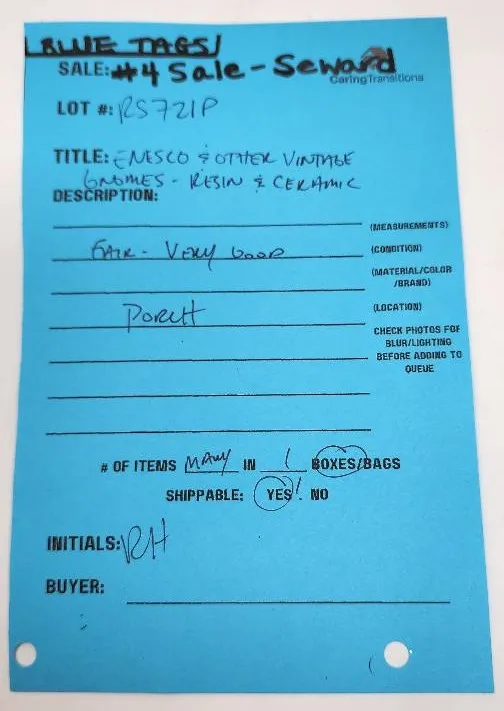 BLUE TAGS
SALE: #4 Sale - Seward
CaringTransitions
LOT #: RS721P
TITLE: ENESCO & OTHER VINTAGE
GNOMES - RESIN & CERAMIC
DESCRIPTION:
(MEASUREMENTS)
FAIR - VERY GOOD (CONDITION)
(MATERIAL/COLOR
/BRAND)
PORCH (LOCATION)
CHECK PHOTOS FOR
BLUR/LIGHTING
BEFORE ADDING TO
QUEUE
# OF ITEMS MANY IN 1 BOXES/BAGS
SHIPPABLE: YES! NO
INITIALS: RH
BUYER: